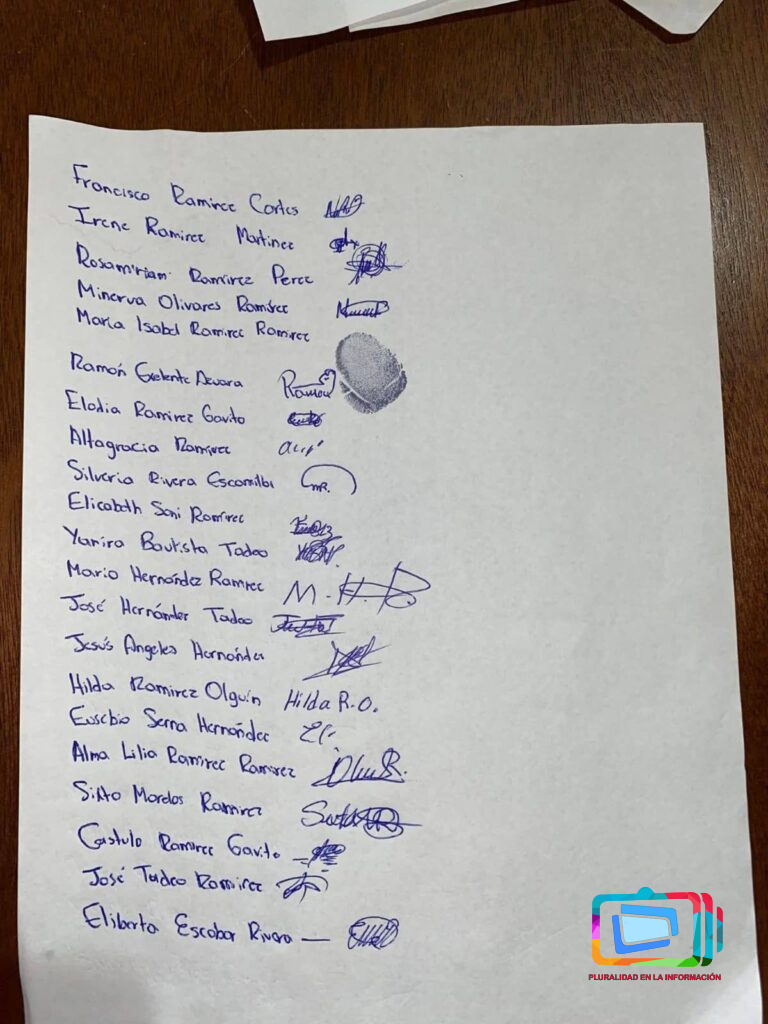 Francisco Ramirez Cortes
Irene Ramirez Martinez
Rosamiriam Ramirez Perez
Minerva Olivares Ramírez
María Isabel Ramirez Ramirez
Ramón Ramon
Elodia Ramirez Gavito
Altagracia Ramirez
Silveria Rivera Escamilla
Elizabeth Sani Ramírez
Yanira Bautista Tadeo
Mario Hernández Ramirez M.H.R.
José Hernández Tadeo
Jesús Angeles Hernández
Hilda Ramirez Olguín Hilda R.O.
Eusebio Serna Hernández
Alma Lilia Ramirez Ramirez
Sixto Ramirez
Castulo Ramirez Gavito
José Tadeo Ramirez
Eliberta Escobar Rivera —
PLURALIDAD EN LA INFORMACIÓN